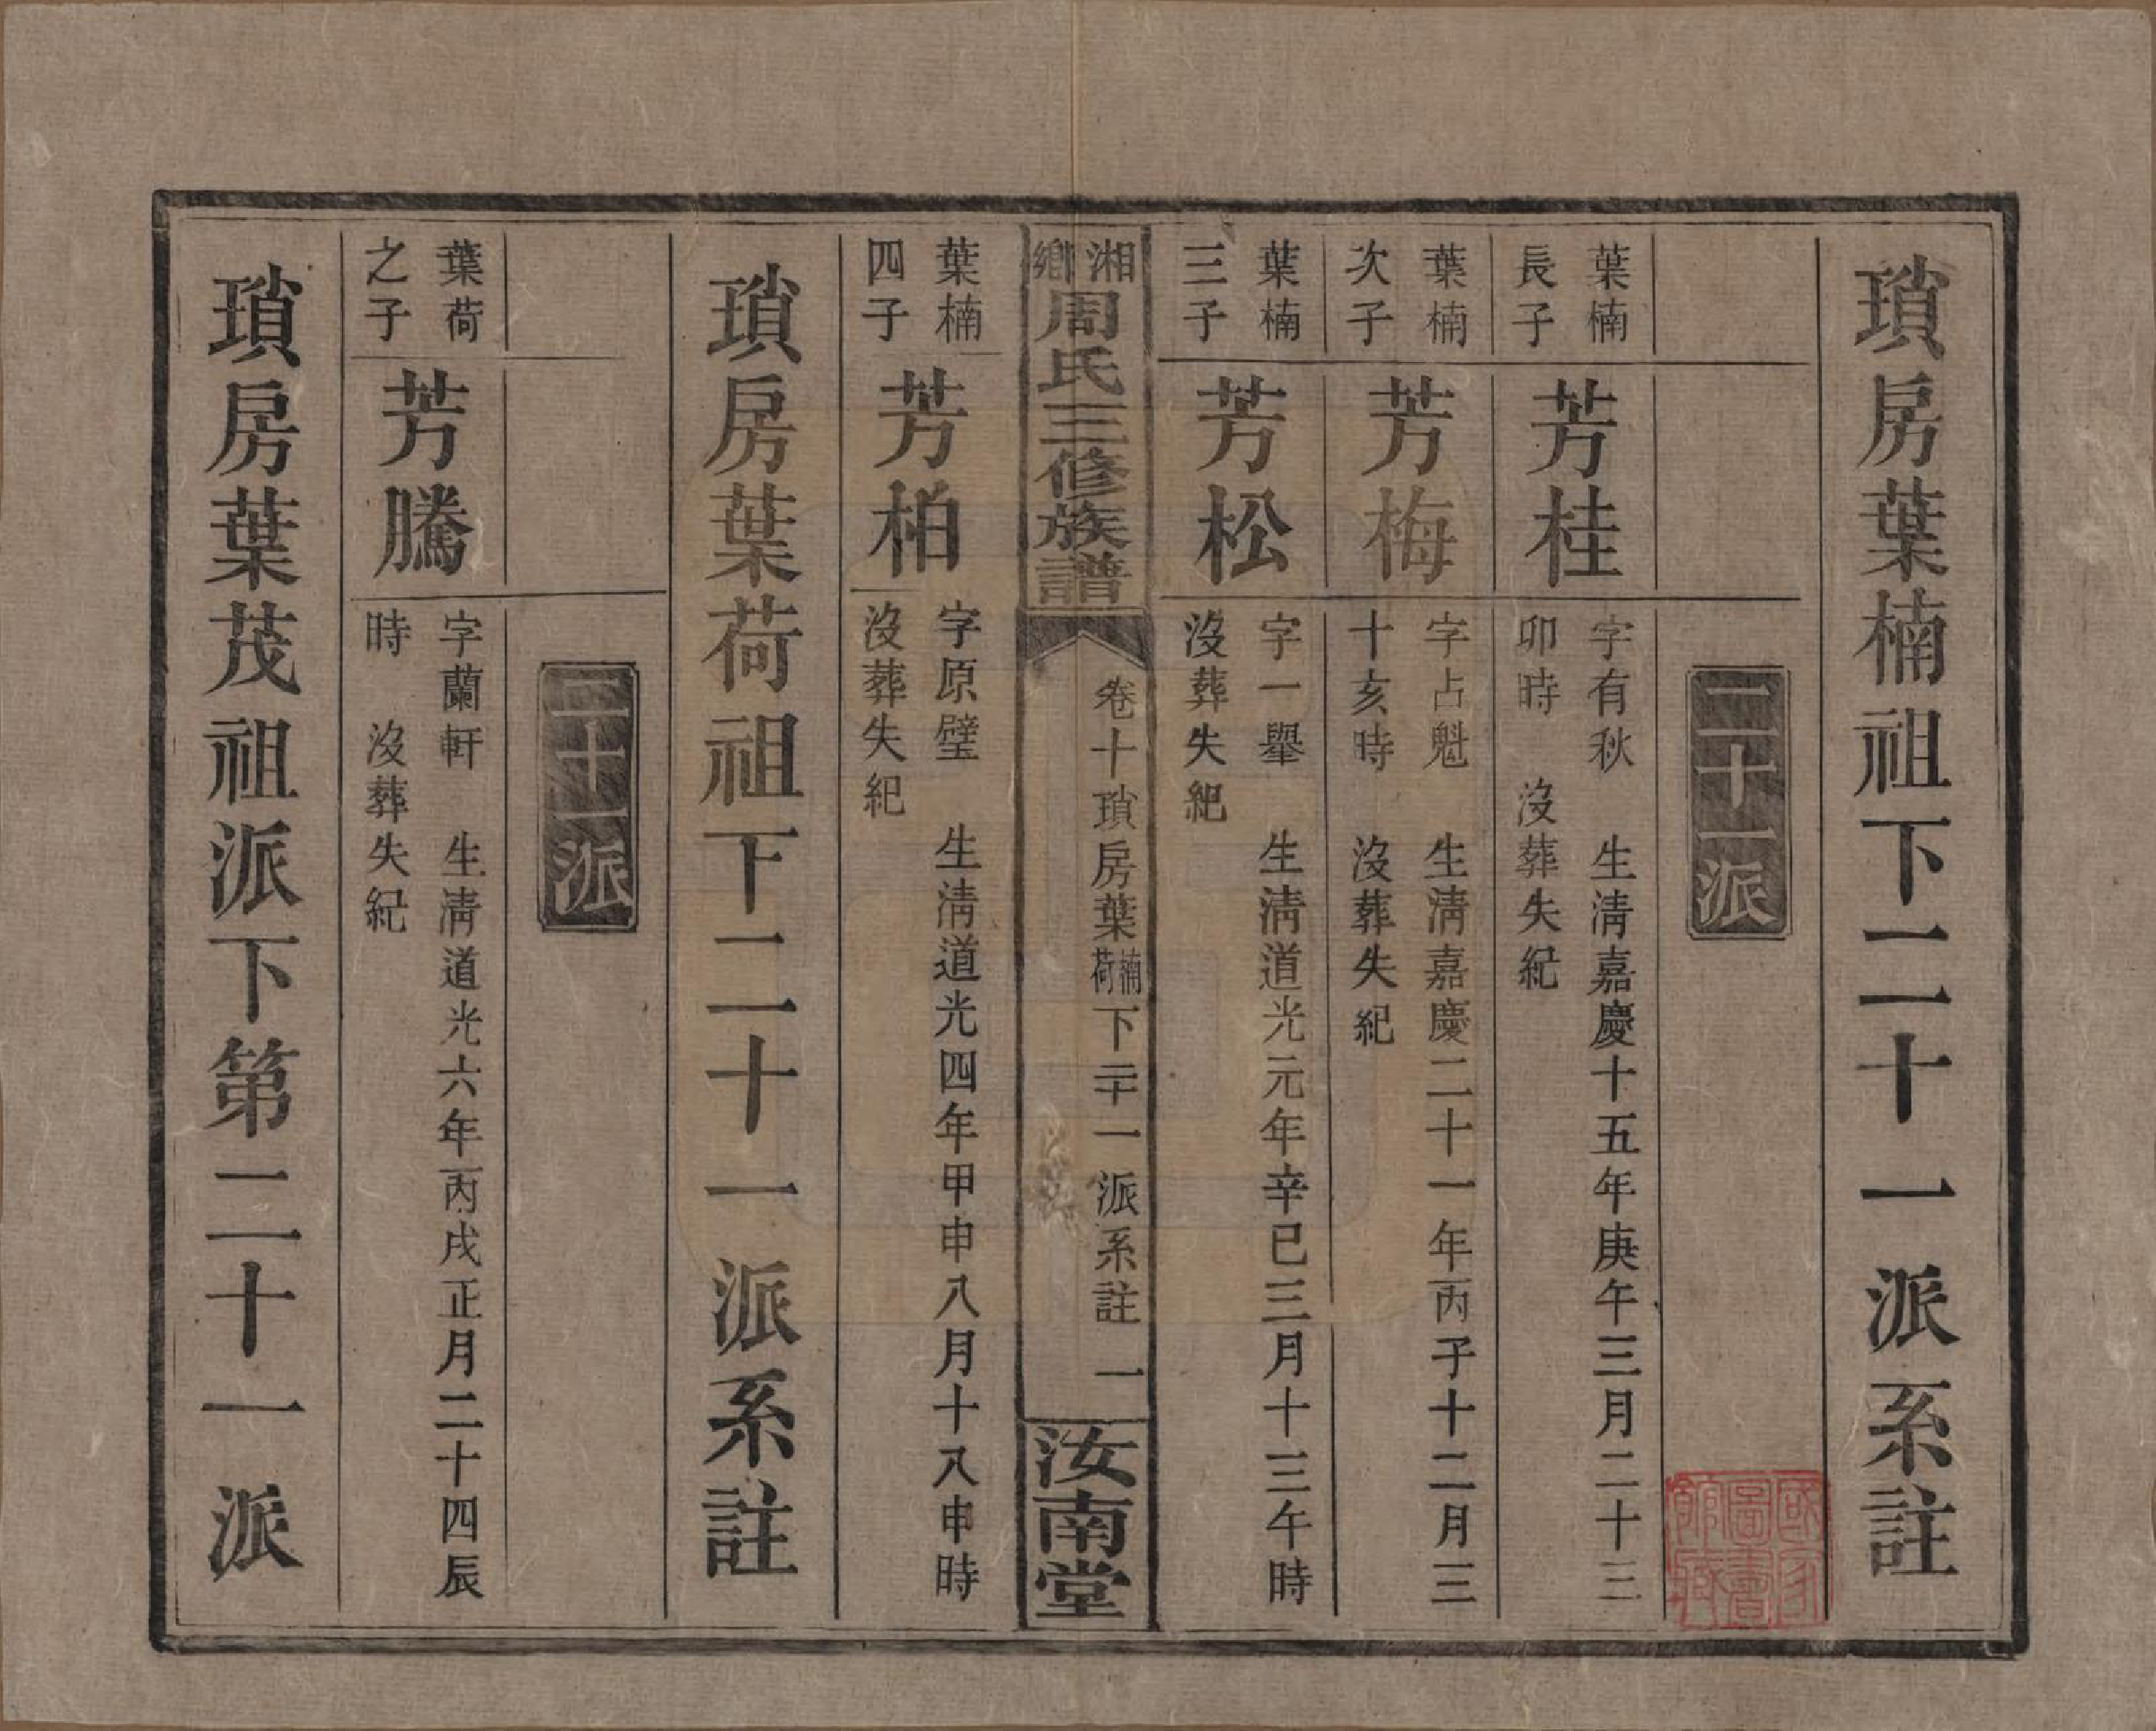 瑣房葉楠祖下二十一派系註
二十一派
葉楠
長子
芳桂
字有秋　生清嘉慶十五年庚午三月二十三
卯時　沒葬失紀
葉楠
次子
芳梅
字占魁　生清嘉慶二十一年丙子十二月三
十亥時　沒葬失紀
葉楠
三子
芳松
字一舉　生清道光元年辛巳三月十三午時
沒葬失紀
湘鄉周氏三修族譜
卷十瑣房葉楠荷下二十一派系註　一
汝南堂
葉楠
四子
芳柏
字原璧　生清道光四年甲申八月十八申時
沒葬失紀
瑣房葉荷祖下二十一派系註
二十一派
葉荷
之子
芳騰
字蘭軒　生清道光六年丙戌正月二十四辰
時　沒葬失紀
瑣房葉茂祖派下第二十一派
國家圖書館藏